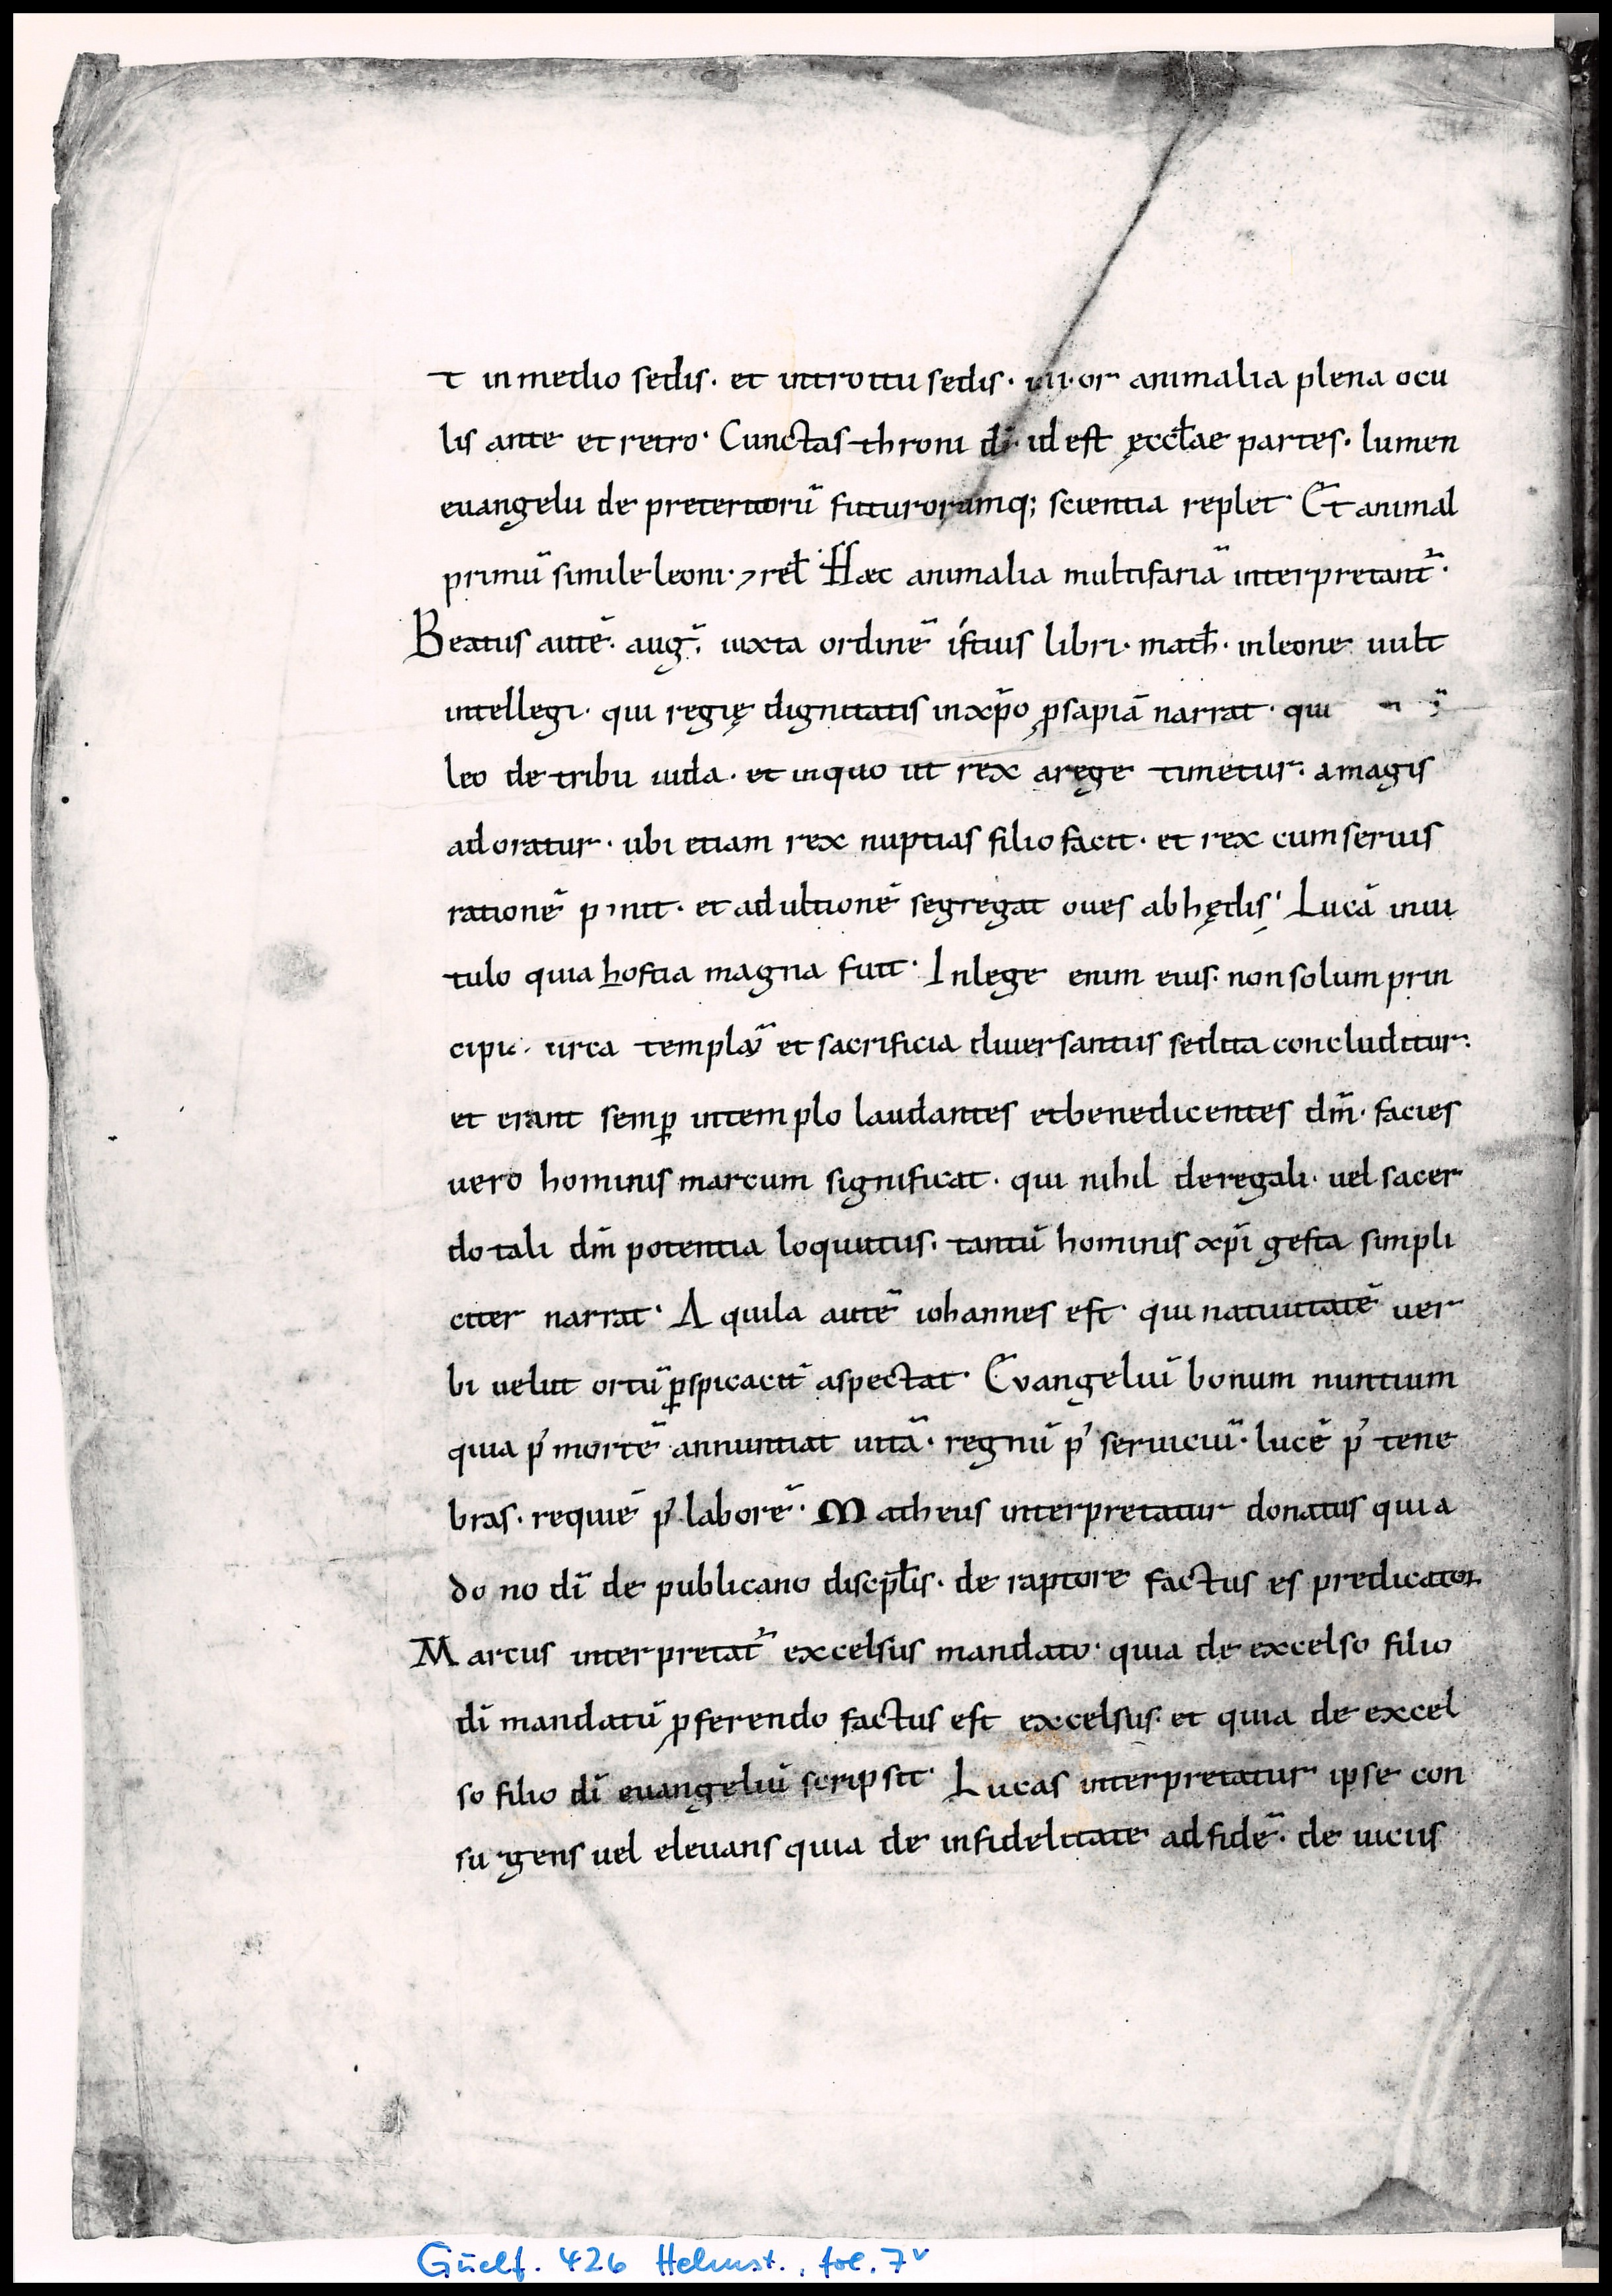 t in medio sedis· et introitu sedis· iiii·or animalia plena ocu
lis ante et retro· Cunctas throni dī· id est ęccłae partes· lumen
euangelii de preteritorū futurorumq; scientia replet· Et animal
primū simile leoni· ⁊ rel̄· Haec animalia multifariā interpretant᷑·
Beatus autē· aug̃; iuxta ordinē istius libri· math̄· in leone uult
intellegi· qui regię dignitatis in xp̄o ꝓsapiā narrat· qui
leo de tribu iuda· et in quo ut rex a rege timetur· a magis
adoratur· ubi etiam rex nuptias filio facit· et rex cum seruis
rationē p nit· et ad ultionē segregat oues ab hędis· Lucā in ui
tulo quia hostia magna fuit· In lege enim eius· non solum prin
cipi urca templū et sacrificia diuersantius sedita concluditur·
et erant semꝑ in templo laudantes et benedicentes dm̄· facies
uero hominis marcum significat· qui nihil de regali· uel sacer
dotali dm̄ potentia loquutus· tantū hominis xp̄i gesta simpli
citer narrat· Aquila autē iohannes est· qui natiuitatē uer
bi uelut ortū ꝑspicacit᷑ aspectat· Euangeliū bonum nuntium
quia p᷒ mortē annuntiat uitā· regnū p᷒ seruiciū· lucē p᷒ tene
bras· requiē p᷒ laborē· Matheus interpretatur donatus quia
dono dī de publicano discip̄łis· de raptore factus es predicator
Marcus interpretat᷑ excelsus mandato· quia de excelso filio
dī mandatū ꝓferendo factus est excelsus· et quia de excel
so filio dī euangeliū scripsit· Lucas interpretatur ipse con
su gens uel eleuans quia de infidelitate ad fidē· de uiciis
Guelf. 426 Helmst., fol. 7v